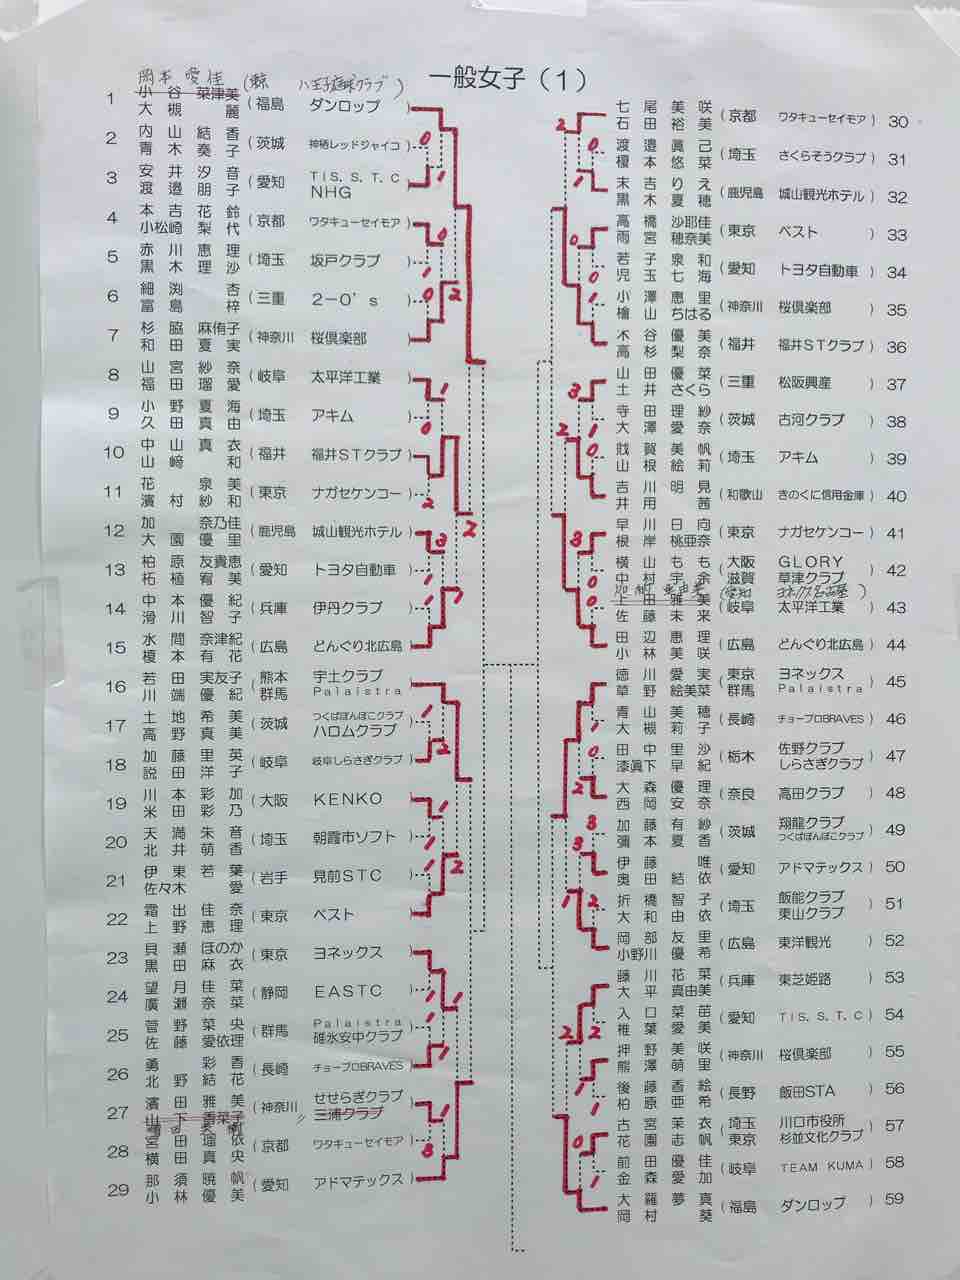 一般女子（1）
岡本 愛佳 (東京 八王子庭球クラブ)
1 小谷 菜津美 (福島 ダンロップ)
大槻 麗
2 内山 結香 (茨城 神栖レッドジャイコ)
青木 奏子
3 安井 汐音 (愛知 TIS.S.T.C
渡邉 朋子 NHG)
4 本吉 花鈴 (京都 ワタキューセイモア)
小松崎 梨代
5 赤川 恵理 (埼玉 坂戸クラブ)
黒木 理沙
6 細渕 杏 (三重 2-0's)
富島 梓
7 杉脇 麻侑子 (神奈川 桜倶楽部)
和田 夏実
8 山宮 紗奈 (岐阜 太平洋工業)
福田 瑠愛
9 小野 夏海 (埼玉 アキム)
久田 真由
10 中山 真衣 (福井 福井STクラブ)
山﨑 和
11 花 泉美 (東京 ナガセケンコー)
濱村 紗和
12 加 奈乃佳 (鹿児島 城山観光ホテル)
大園 優里
13 柏原 友貴恵 (愛知 トヨタ自動車)
柘植 宥美
14 中本 優紀 (兵庫 伊丹クラブ)
滑川 智子
15 水間 奈津紀 (広島 どんぐり北広島)
榎本 有花
16 若田 実友子 (熊本 宇土クラブ)
川端 優紀 (群馬 Palaistra)
17 土地 希美 (茨城 つくばぽんぽこクラブ
高野 真美 ハロムクラブ)
18 加藤 里英 (岐阜 岐阜しらさぎクラブ)
説田 洋子
19 川本 彩加 (大阪 KENKO)
米田 彩乃
20 天満 朱音 (埼玉 朝霞市ソフト)
北井 萌香
21 伊東 若葉 (岩手 見前STC)
佐々木 愛
22 霜出 佳奈 (東京 ベスト)
上野 恵理
23 貝瀬 ほのか (東京 ヨネックス)
黒田 麻衣
24 望月 佳菜 (静岡 EASTC)
廣瀬 奈菜
25 菅野 菜央 (群馬 Palaistra
佐藤 愛依理 碓氷安中クラブ)
26 勇 彩香 (長崎 チョープロBRAVES)
北野 結花
27 濱田 雅美 (神奈川 せせらぎクラブ
山下 香菜子 三浦クラブ)
28 宮田 瑠依 (京都 ワタキューセイモア)
横田 真央
29 那須 暁帆 (愛知 アドマテックス)
小林 優美
七尾 美咲 (京都 ワタキューセイモア) 30
石田 裕美
渡邉 眞己 (埼玉 さくらそうクラブ) 31
榎本 悠菜
末吉 りえ (鹿児島 城山観光ホテル) 32
黒木 夏穂
高橋 沙耶佳 (東京 ベスト) 33
雨宮 穂奈美
若子 泉和 (愛知 トヨタ自動車) 34
児玉 七海
小澤 恵里 (神奈川 桜倶楽部) 35
檜山 ちはる
木谷 優美 (福井 福井STクラブ) 36
高杉 梨奈
山田 優菜 (三重 松阪興産) 37
土井 さくら
寺田 理紗 (茨城 古河クラブ) 38
大澤 愛奈
戝賀 美帆 (埼玉 アキム) 39
山根 絵莉
吉川 明見 (和歌山 きのくに信用金庫) 40
井用 茜
早川 日向 (東京 ナガセケンコー) 41
根岸 桃亜奈
横山 もも (大阪 GLORY
中村 宇余 (滋賀 草津クラブ) 42
上田 雅美 (岐阜 太平洋工業) 43
佐藤 未来
田辺 恵理 (広島 どんぐり北広島) 44
小林 美咲
徳川 愛実 (東京 ヨネックス
草野 絵美菜 群馬 Palaistra) 45
青山 美穂 (長崎 チョープロBRAVES) 46
大槻 莉子
田中 里沙 (栃木 佐野クラブ
漆眞下 早紀 しらさぎクラブ) 47
大森 優理 (奈良 高田クラブ) 48
西岡 安奈
加藤 有紗 (茨城 翔龍クラブ
彌本 夏香 つくばぽんぽこクラブ) 49
伊藤 唯 (愛知 アドマテックス) 50
奥田 結依
折橋 智子 (埼玉 飯能クラブ
大和 由依 東山クラブ) 51
岡部 友里 (広島 東洋観光) 52
小野川 優希
藤川 花菜 (兵庫 東芝姫路) 53
大平 真由美
入口 菜苗 (愛知 TIS.S.T.C) 54
椎葉 愛美
押野 美咲 (神奈川 桜倶楽部) 55
熊澤 萌里
後藤 香絵 (長野 飯田STA) 56
柏原 亜希
古宮 茉衣 (埼玉 川口市役所
花園 志帆 東京 杉並文化クラブ) 57
前田 優佳 (岐阜 TEAM KUMA) 58
金森 愛加
大羅 夢真 (福島 ダンロップ) 59
岡村 葵